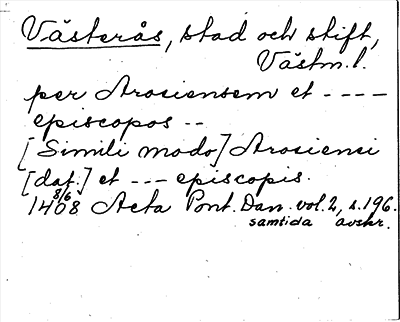 Västerås, stad och stift,
Västm.l.
per Arosiensem et - - - -
episcopos - -
[Simili modo] Arosiensi
[dat.] et - - - episcopis.
8/6
1408 Acta Pont. Dan. vol. 2, s. 196.
samtida avskr.